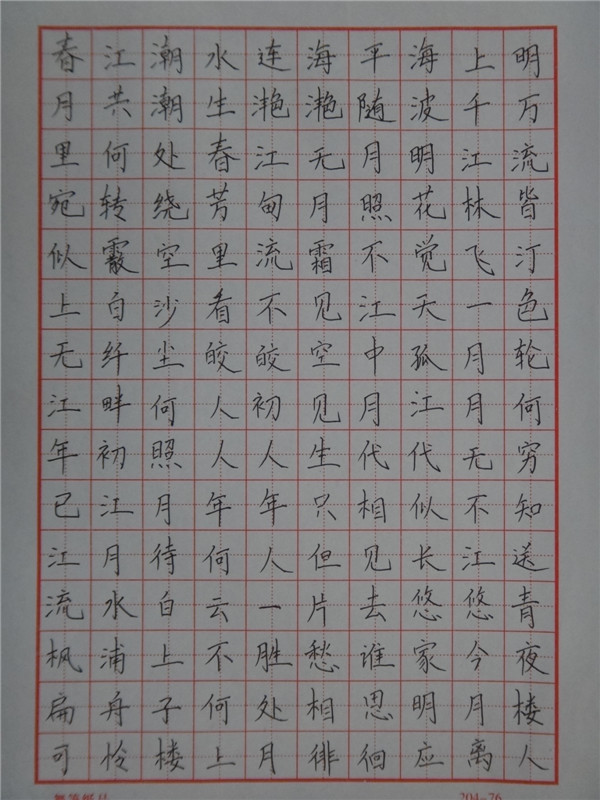 春江潮水连海平海上明
月共潮生滟滟随波千万
里何处春江无月明江流
宛转绕芳甸月照花林皆
似霰空里流霜不觉飞汀
上白沙看不见江天一色
无纤尘皎皎空中孤月轮
江畔何人初见月江月何
年初照人人生代代无穷
已江月年年只相似不知
江月待何人但见长江送
流水白云一片去悠悠青
枫浦上不胜愁谁家今夜
扁舟子何处相思明月楼
可怜楼上月徘徊应离人